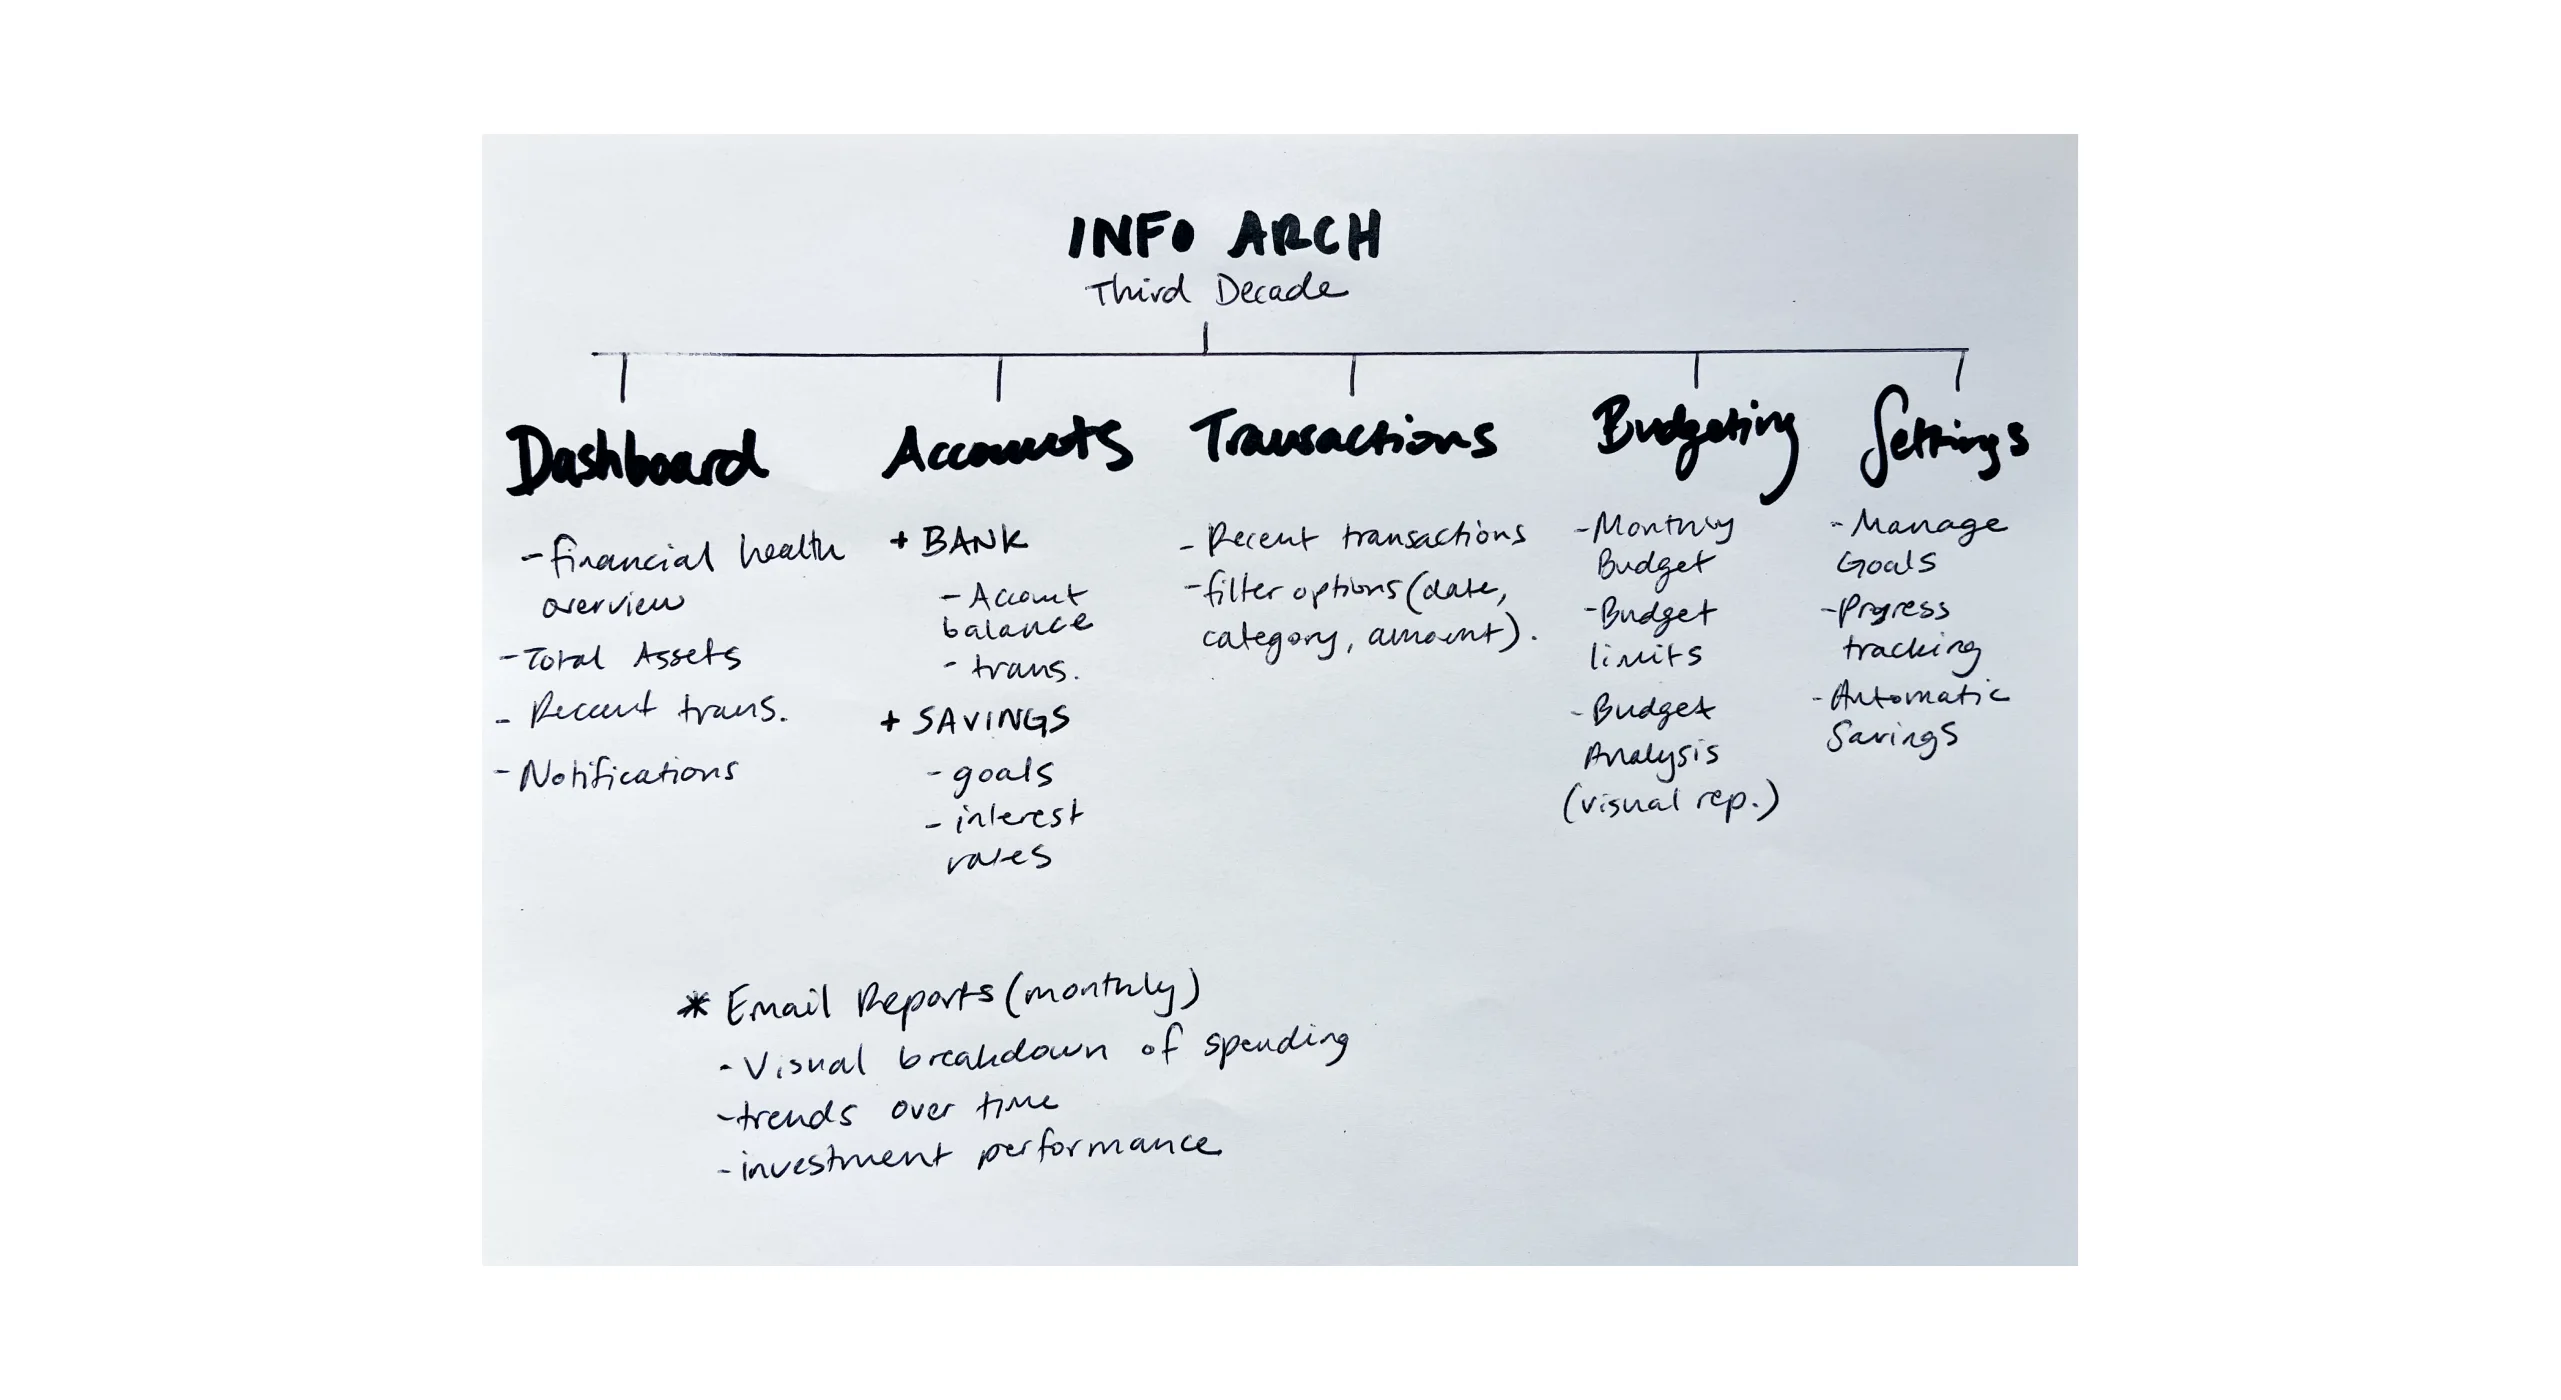 INFO ARCH
Third Decade
Dashboard
- financial health
overview
- Total Assets
- Recent trans.
- Notifications
Accounts
+ BANK
- Account
balance
- trans.
+ SAVINGS
- goals
- interest
rates
Transactions
- Recent transactions
- filter options (date,
category, amount).
Budgeting
- Monthly
Budget
- Budget
limits
- Budget
Analysis
(visual rep.)
Settings
- Manage
Goals
- Progress
tracking
- Automatic
Savings
* Email Reports (monthly)
- Visual breakdown of spending
- trends over time
- investment performance